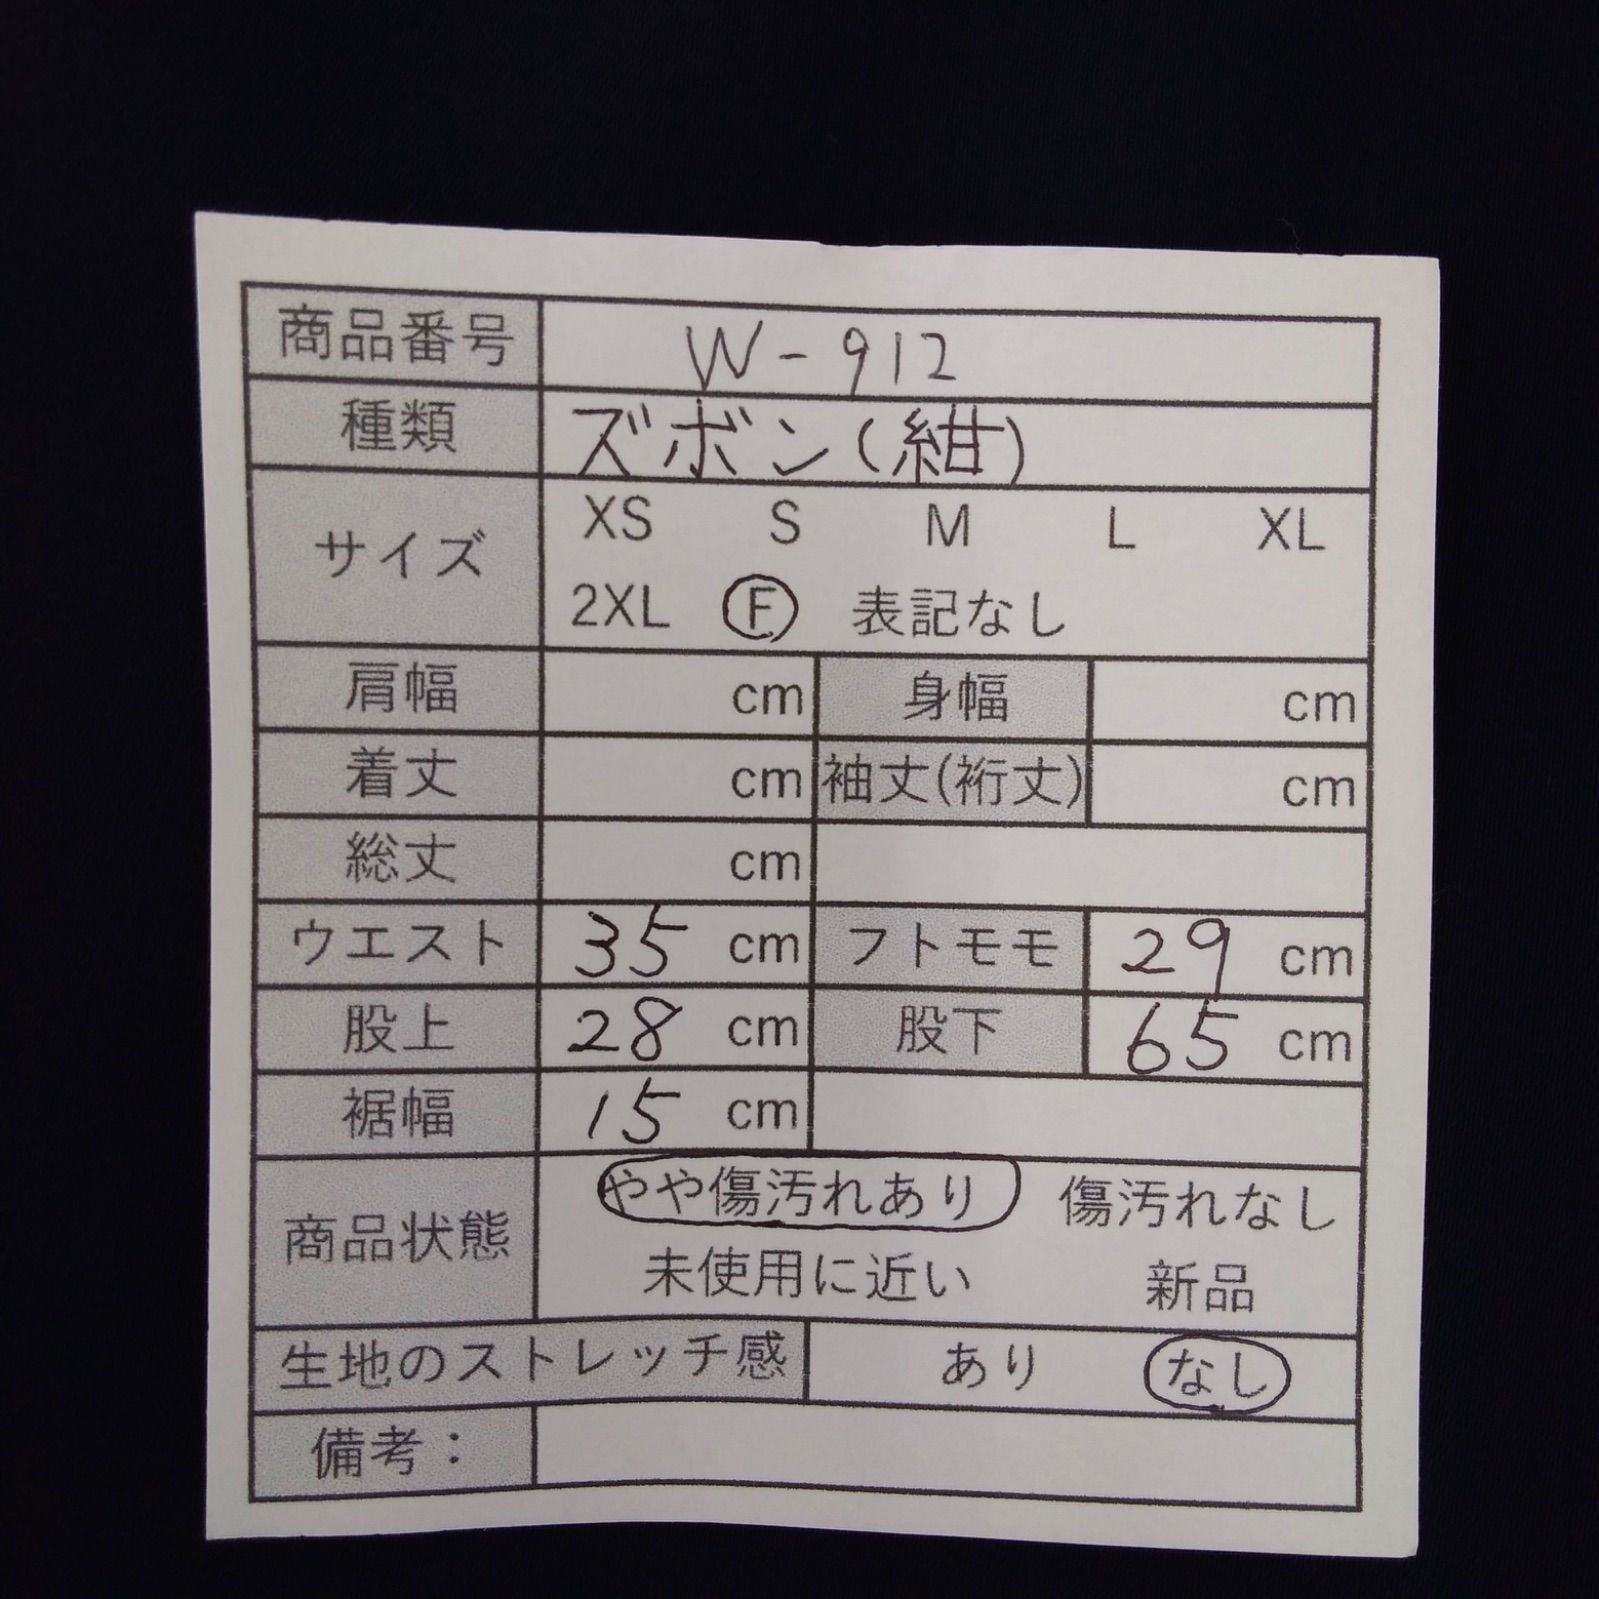 商品番号 W-912
種類 ズボン(紺)
サイズ XS S M L XL
2XL F 表記なし
肩幅 cm 身幅 cm
着丈 cm 袖丈(裄丈) cm
総丈 cm
ウエスト 35 cm フトモモ 29 cm
股上 28 cm 股下 65 cm
裾幅 15 cm
商品状態 やや傷汚れあり 傷汚れなし
未使用に近い 新品
生地のストレッチ感 あり なし
備考：